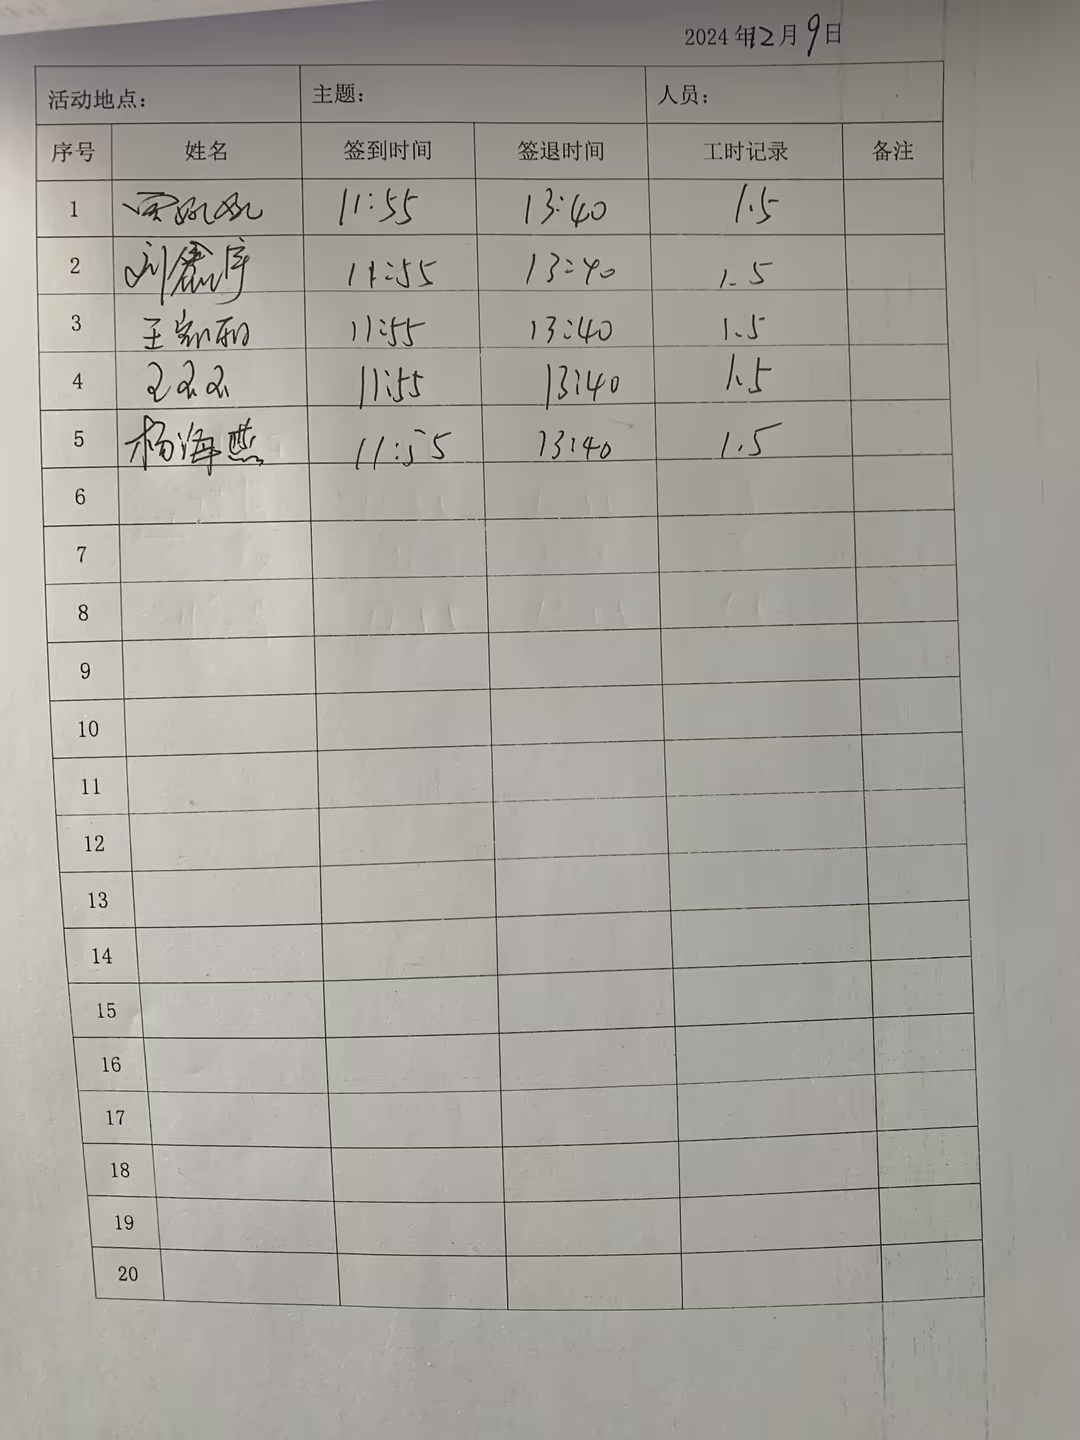 2024年12月9日
活动地点： 主题： 人员：
序号 姓名 签到时间 签退时间 工时记录 备注
1 11:55 13:40 1.5
2 刘鑫宇 11:55 13:40 1.5
3 王 11:55 13:40 1.5
4 11:55 13:40 1.5
5 杨海燕 11:55 13:40 1.5
6
7
8
9
10
11
12
13
14
15
16
17
18
19
20